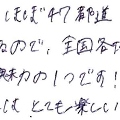 ほぼ47都道
なので、全国各
魅力の1つです!
も とても楽しい